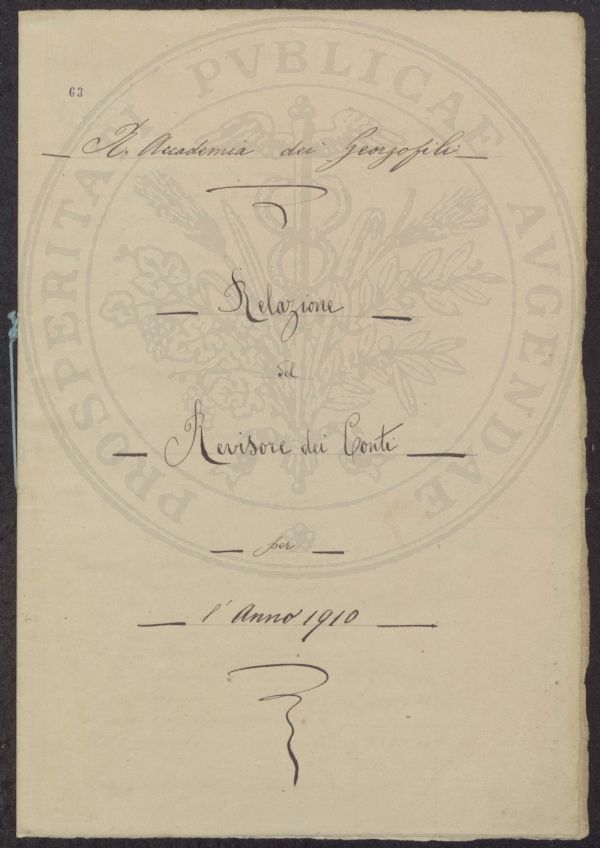 63
PROSPERITATI PVBLICAE AVGENDAE
R. Accademia dei Georgofili
Relazione
del
Revisore dei Conti
per
l'Anno 1910